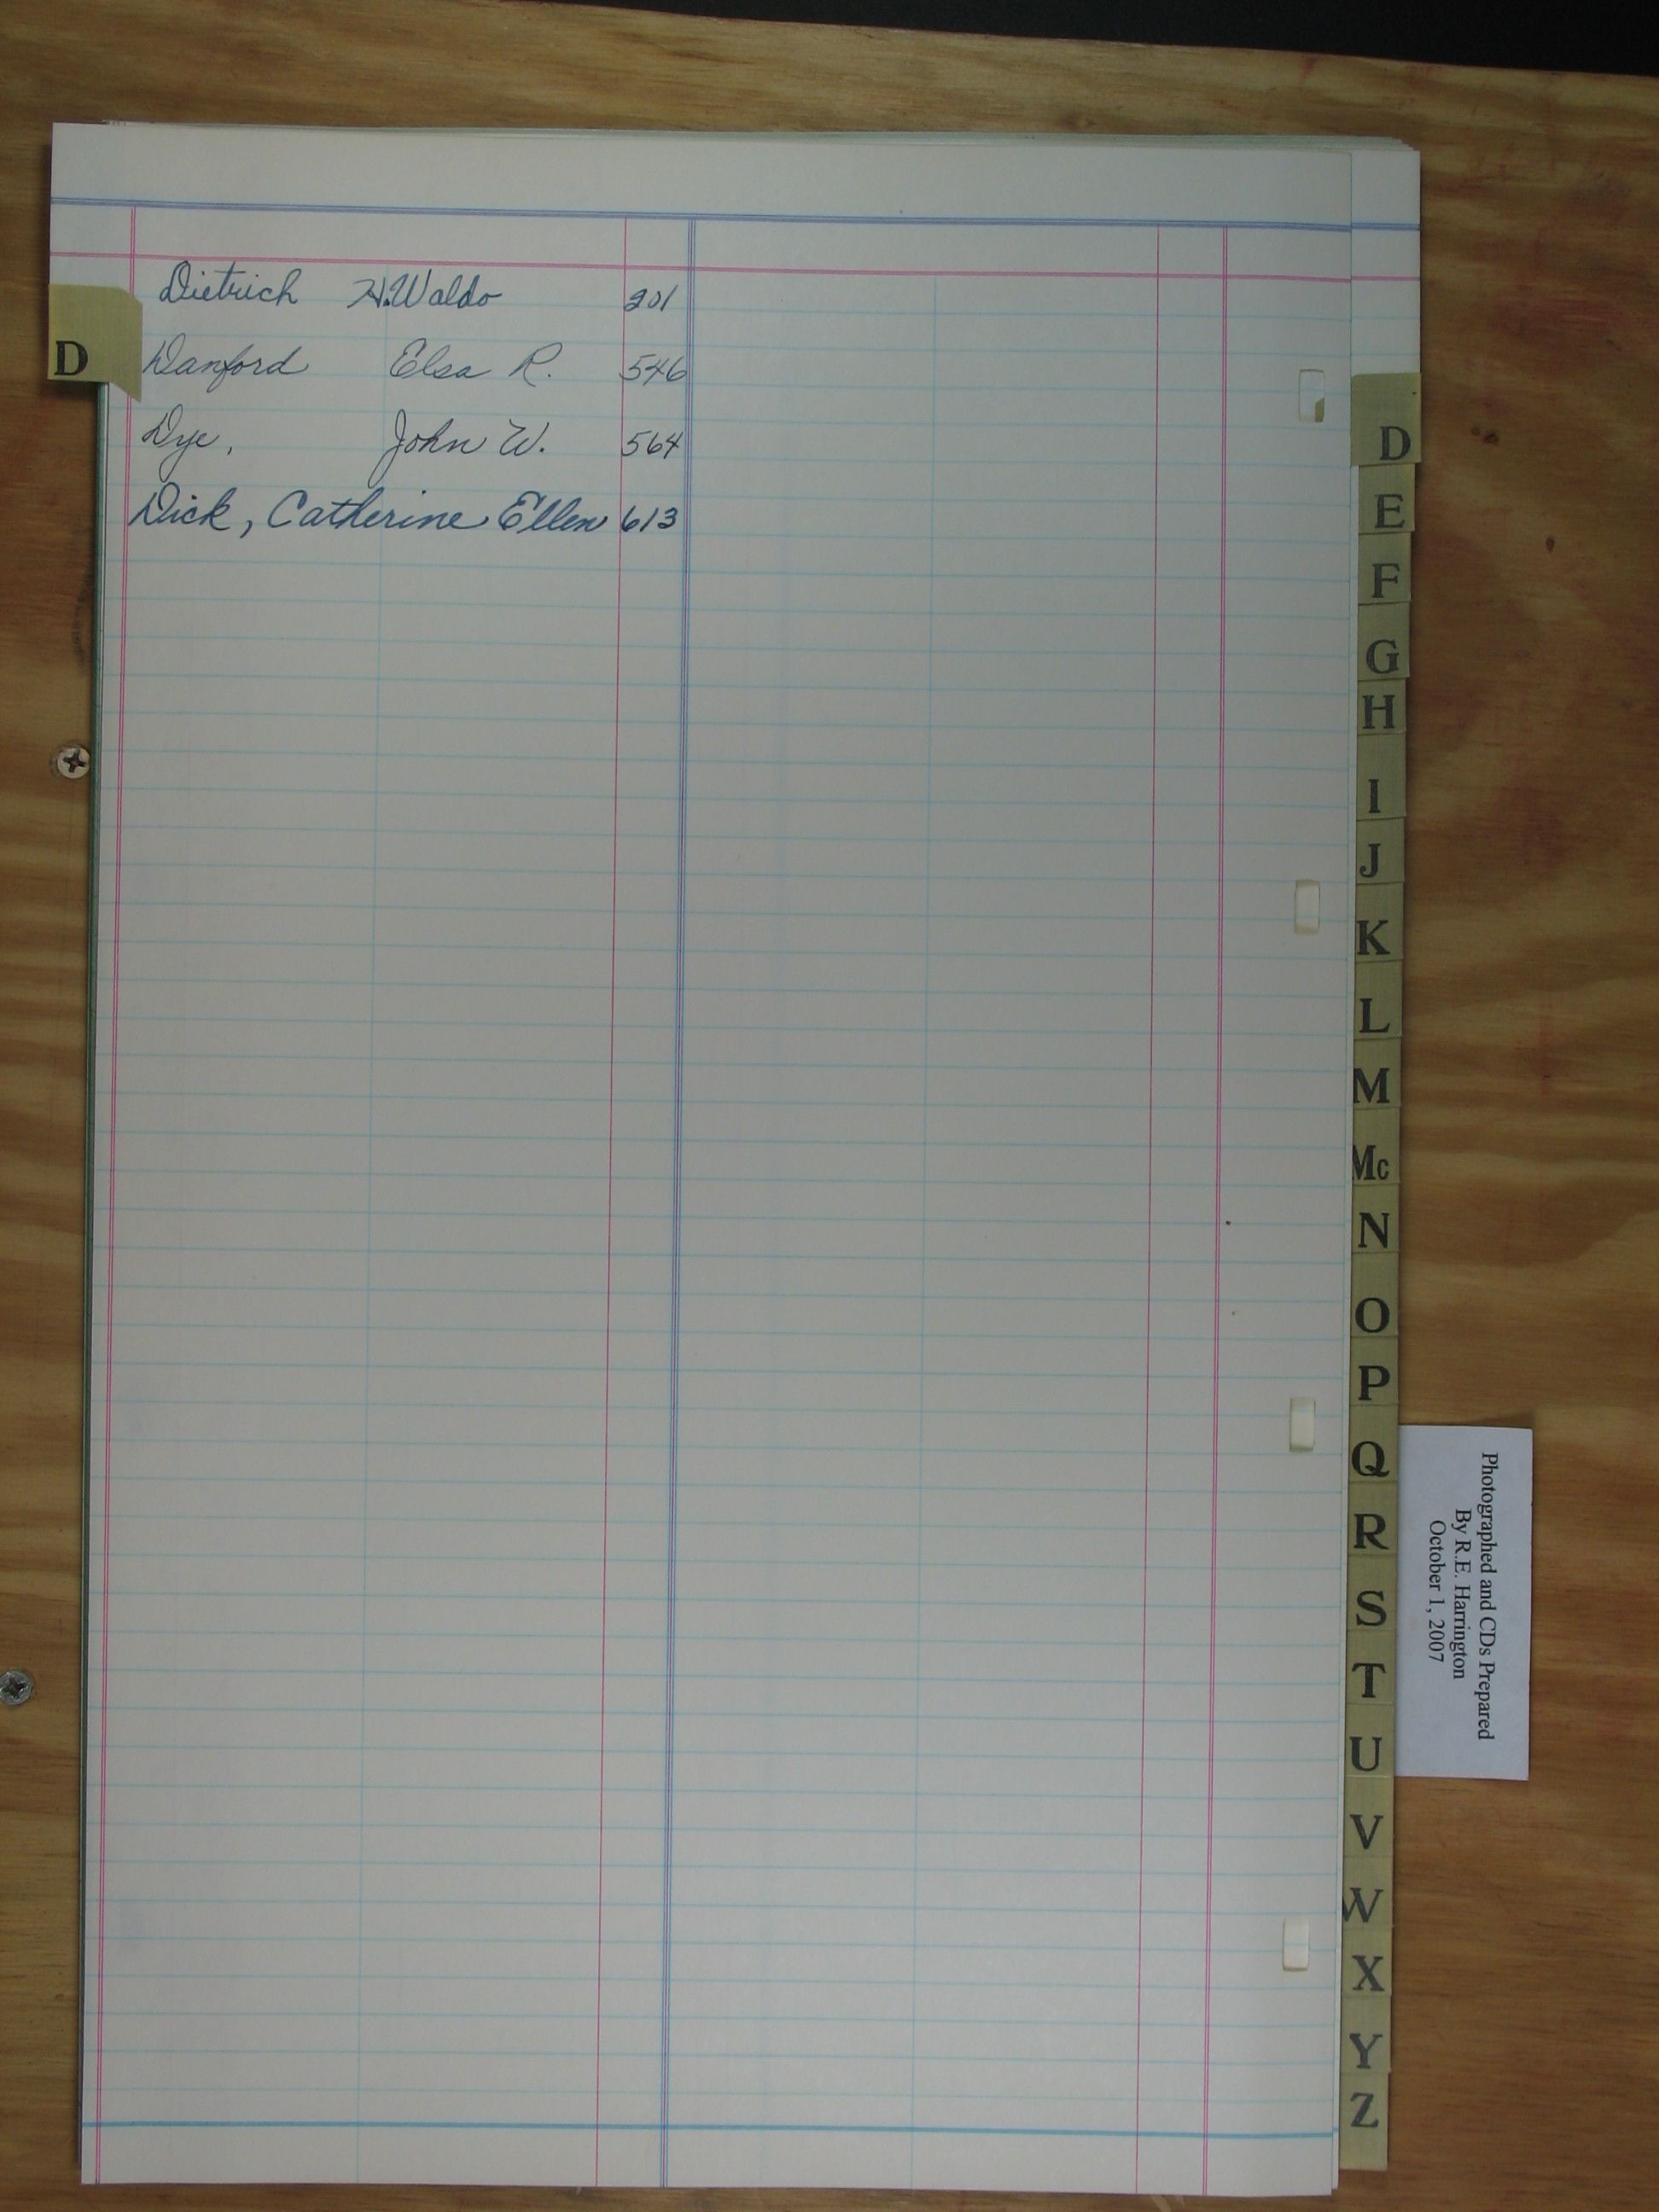 Dietrich H. Waldo 201
D
Danford Elsa R. 546
Dye, John W. 564
Dick, Catherine Ellen 613
D
E
F
G
H
I
J
K
L
M
Mc
N
O
P
Q
R
S
T
U
V
W
X
Y
Z
Photographed and CDs Prepared
By R.E. Harrington
October 1, 2007